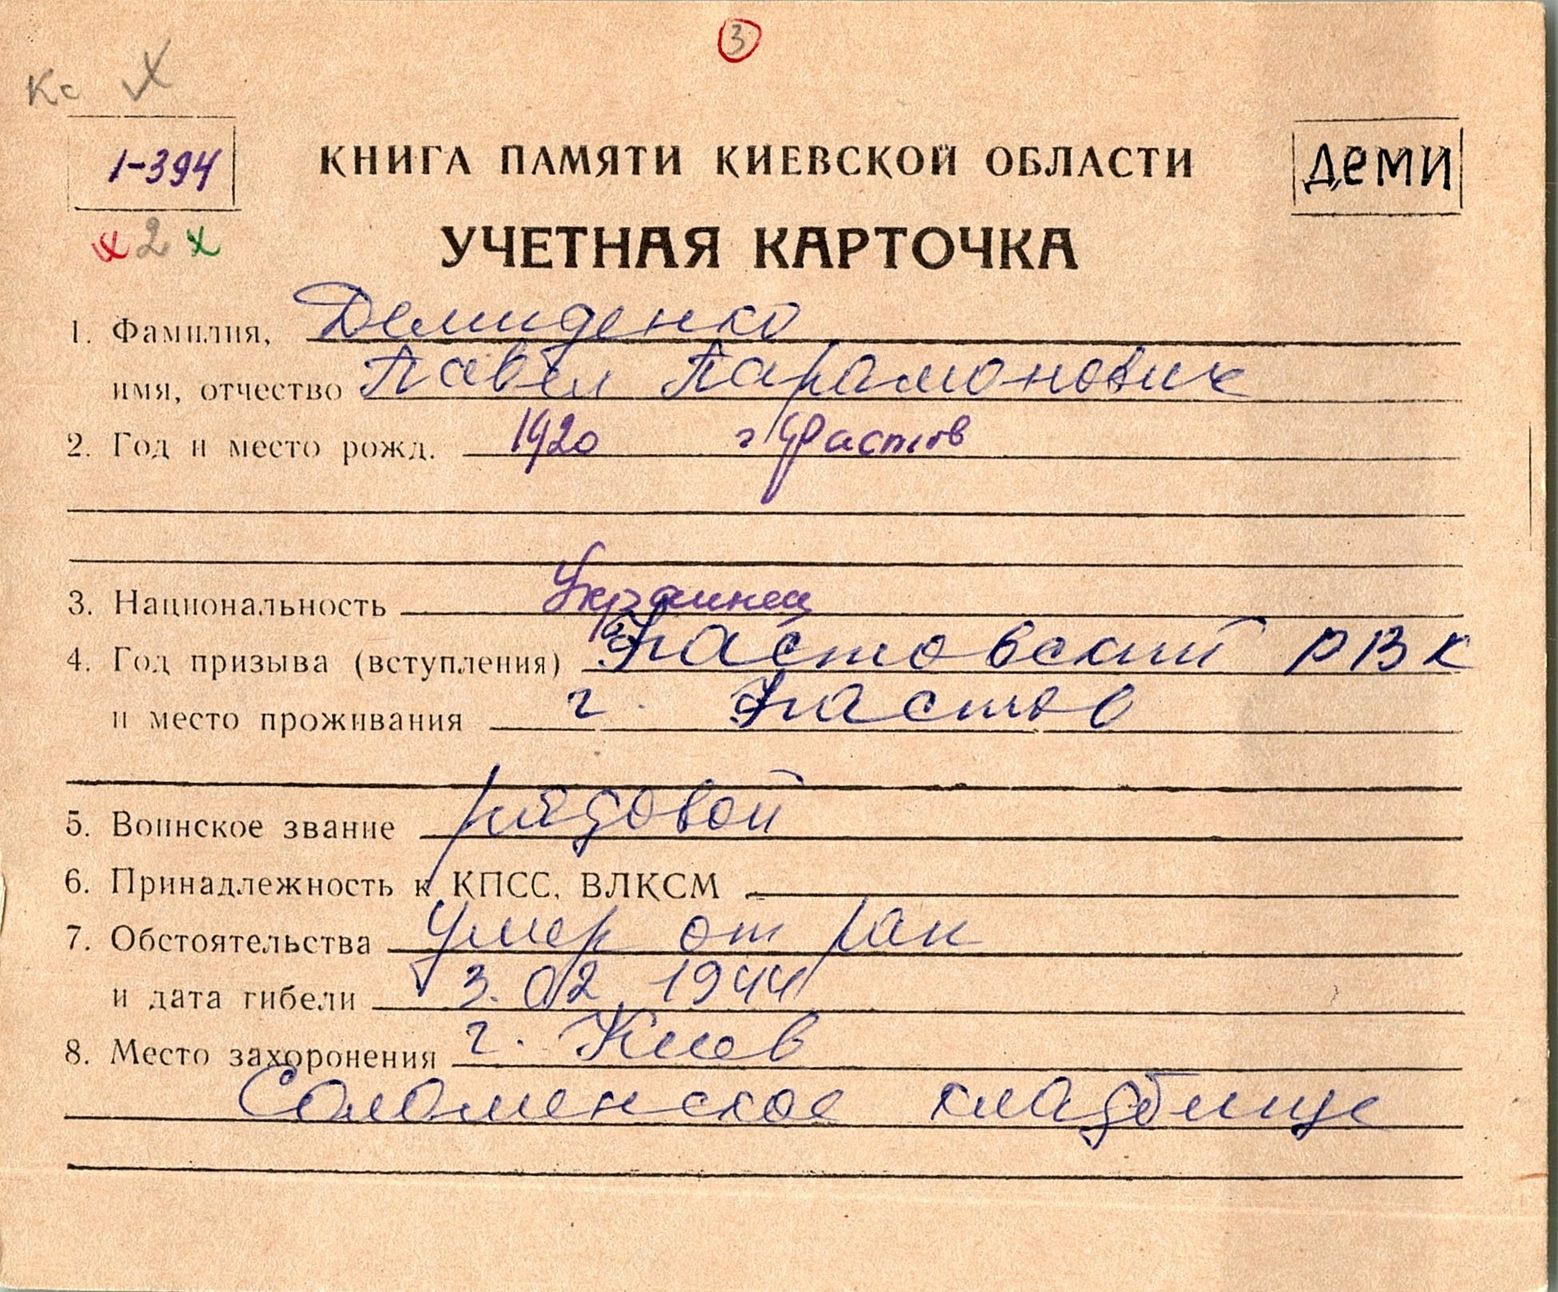 3
Кс
1-394
КНИГА ПАМЯТИ КИЕВСКОЙ ОБЛАСТИ
ДЕМИ
х 2 х
УЧЕТНАЯ КАРТОЧКА
1. Фамилия, Демиденко
имя, отчество Павел Парамонович
2. Год и место рожд. 1920 г Фастов
3. Национальность Украинец
4. Год призыва (вступления) Фастовский РВК
и место проживания г. Фастов
5. Воинское звание рядовой
6. Принадлежность к КПСС, ВЛКСМ
7. Обстоятельства умер от ран
и дата гибели 3.02.1944
8. Место захоронения г. Киев
Соломенское кладбище